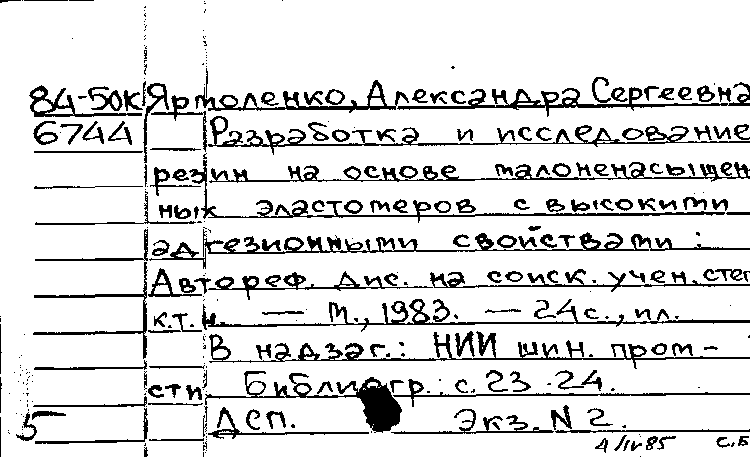 84-50К Ярмоленко, Александра Сергеевна
6744 Разработка и исследование
резин на основе малоненасыщен
ных эластомеров с высокими
адгезионными свойствами:
Автореф. дис. на соиск. учен. степ
к.т.н. — М., 1983. — 24с., ил.
В надзаг.: НИИ шин. пром-
сти. Библиогр.: с. 23-24.
5 Дсп. Экз. N 2.
4/IV-85 С.Б